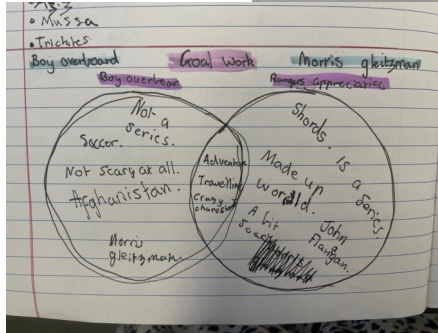 • Mussa
Boy overboard Goal work Morris gleitzman
Boy overboard Rangers appreciatice
Not a
series.
Soccer.
Not scary at all.
Afghanistan.
Morris
gleitzman.
Adventure
Travelling
Crazy
Shords. is a series.
Made up
world.
A bit
John
Flangan.